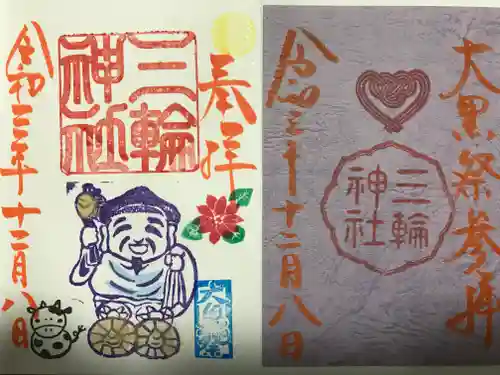 大黒祭参拝
三輪
神社
令和三年十二月八日
奉拝
三輪
神社
令和三年十二月八日